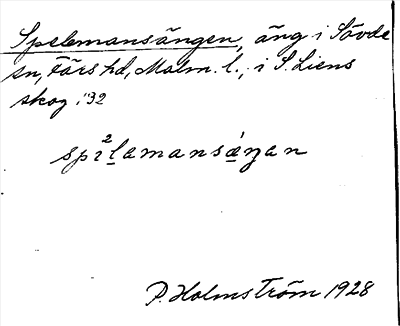 Spelemansängen, äng i Sövde
sn, Färs hd, Malm. l., i S. Liens
skog. '32
spɪ²lamansáŋan
P. Holmström 1928